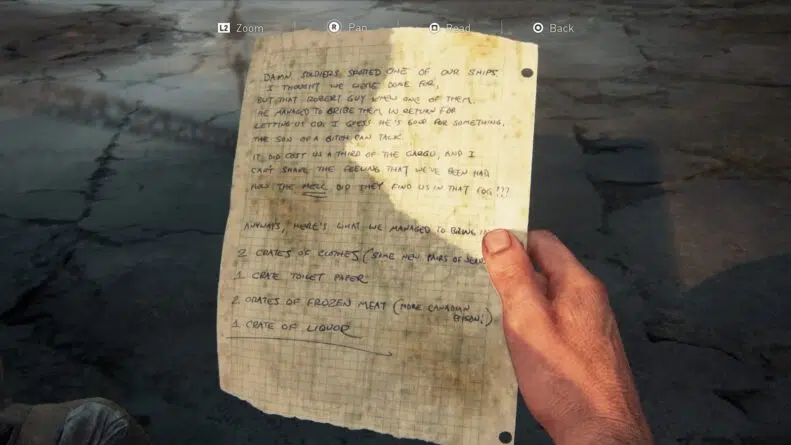 L2 Zoom R Pan Read Back
DAMN SOLDIERS SPOTTED ONE OF OUR SHIPS.
I THOUGHT WE WERE DONE FOR,
BUT THAT ROBERT GUY KNEW ONE OF THEM.
HE MANAGED TO BRIBE THEM IN RETURN FOR
LETTING US GO. I GUESS HE'S GOOD FOR SOMETHING,
THE SON OF A BITCH CAN TALK.
IT DID COST US A THIRD OF THE CARGO, AND I
CAN'T SHAKE THE FEELING THAT WE'VE BEEN HAD
HOW THE HELL DID THEY FIND US IN THAT FOG!??
ANYWAYS, HERE'S WHAT WE MANAGED TO BRING
2 CRATES OF CLOTHES (SOME NEW PAIRS OF
1 CRATE TOILET PAPER
2 CRATES OF FROZEN MEAT (MORE CANADIAN
BISON!)
1 CRATE OF LIQUOR